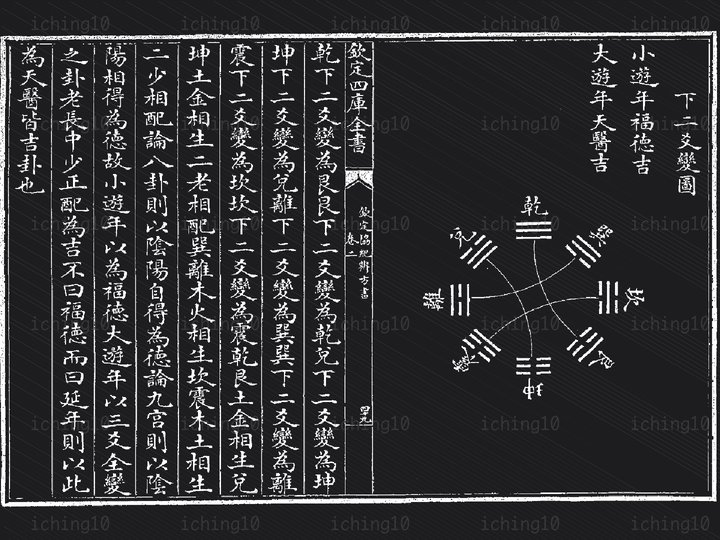 下二爻變圖
小遊年福德吉
大遊年天醫吉
乾
巽
坎
艮
坤
震
離
兌
欽定四庫全書
欽定協紀辨方書
卷一
四九
乾下二爻變為艮艮下二爻變為乾兌下二爻變為坤
坤下二爻變為兌離下二爻變為巽巽下二爻變為離
震下二爻變為坎坎下二爻變為震乾艮土金相生兌
坤土金相生二老相配巽離木火相生坎震木土相生
二少相配論八卦則以陰陽自得為德論九宮則以陰
陽相得為德故小遊年以為福德大遊年以三爻全變
之卦老長中少正配為吉不曰福德而曰延年則以此
為天醫皆吉卦也
iching10 iching10 iching10 iching10 iching10
iching10 iching10 iching10 iching10 iching10
iching10 iching10 iching10 iching10 iching10
iching10 iching10 iching10 iching10 iching10
iching10 iching10 iching10 iching10 iching10
iching10 iching10 iching10 iching10 iching10